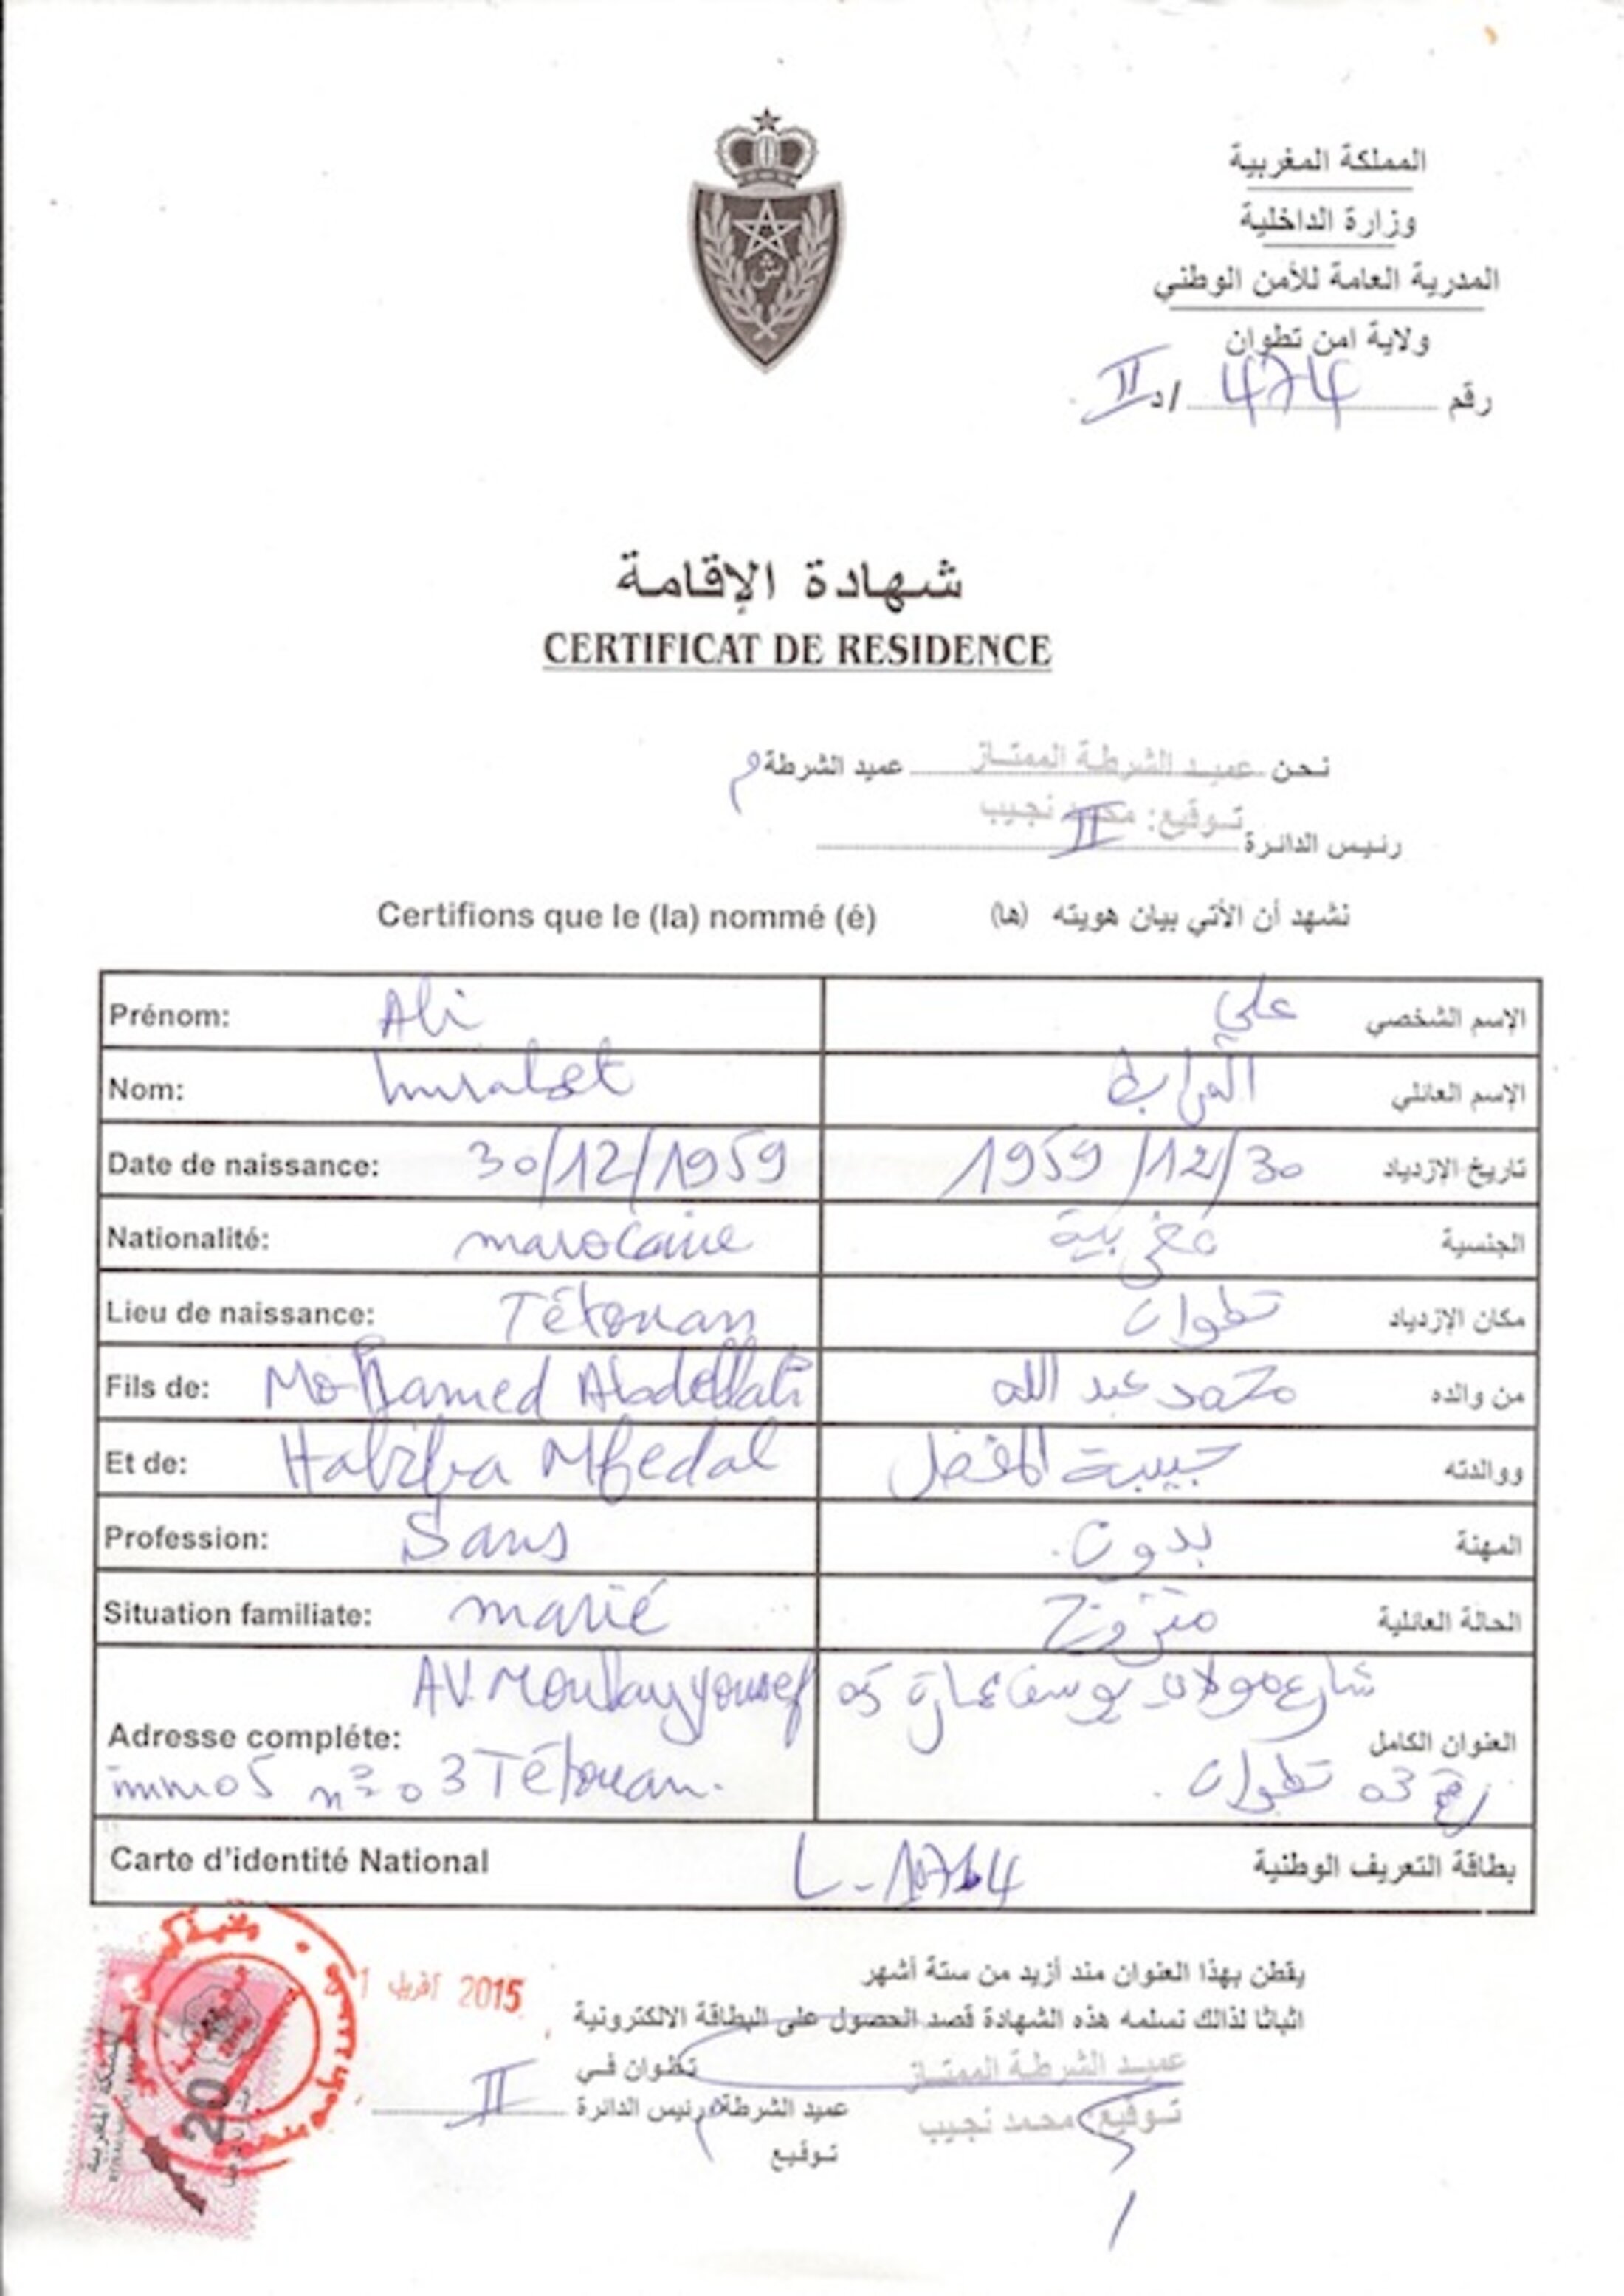 المملكة المغربية
وزارة الداخلية
المدرية العامة للأمن الوطني
ولاية امن تطوان
رقم 474 /د II
شهادة الإقامة
CERTIFICAT DE RESIDENCE
نحن عميد الشرطة الممتاز عميد الشرطة
توقيع: محمد نجيب
رئيس الدائرة II
Certifions que le (la) nommé (é) نشهد أن الأتي بيان هويته (ها)
Prénom: Ali علي الإسم الشخصي
Nom: lmrabet المرابط الإسم العائلي
Date de naissance: 30/12/1959 1959/12/30 تاريخ الإزدياد
Nationalité: marocaine مغربية الجنسية
Lieu de naissance: Tétouan تطوان مكان الإزدياد
Fils de: Mohamed Abdellah محمد عبد الله من والده
Et de: Habiba Mfedal حبيبة المفضل ووالدته
Profession: Sans بدون. المهنة
Situation familiate: marié متزوج الحالة العائلية
AV. Moulay youssef شارع مولاي يوسف عمارة 05
Adresse compléte: العنوان الكامل
imm 05 n° 03 Tétouan. رقم 03 تطوان.
Carte d'identité National بطاقة التعريف الوطنية
يقطن بهذا العنوان مند أزيد من ستة أشهر
أفريل 2015
اثباثا لذالك نسلمه هذه الشهادة قصد الحصول على البطاقة الالكترونية
تطوان في
عميد الشرطة الممتاز
عميد الشرطة رئيس الدائرة II
توقيع: محمد نجيب
توقيع
المملكة المغربية
20